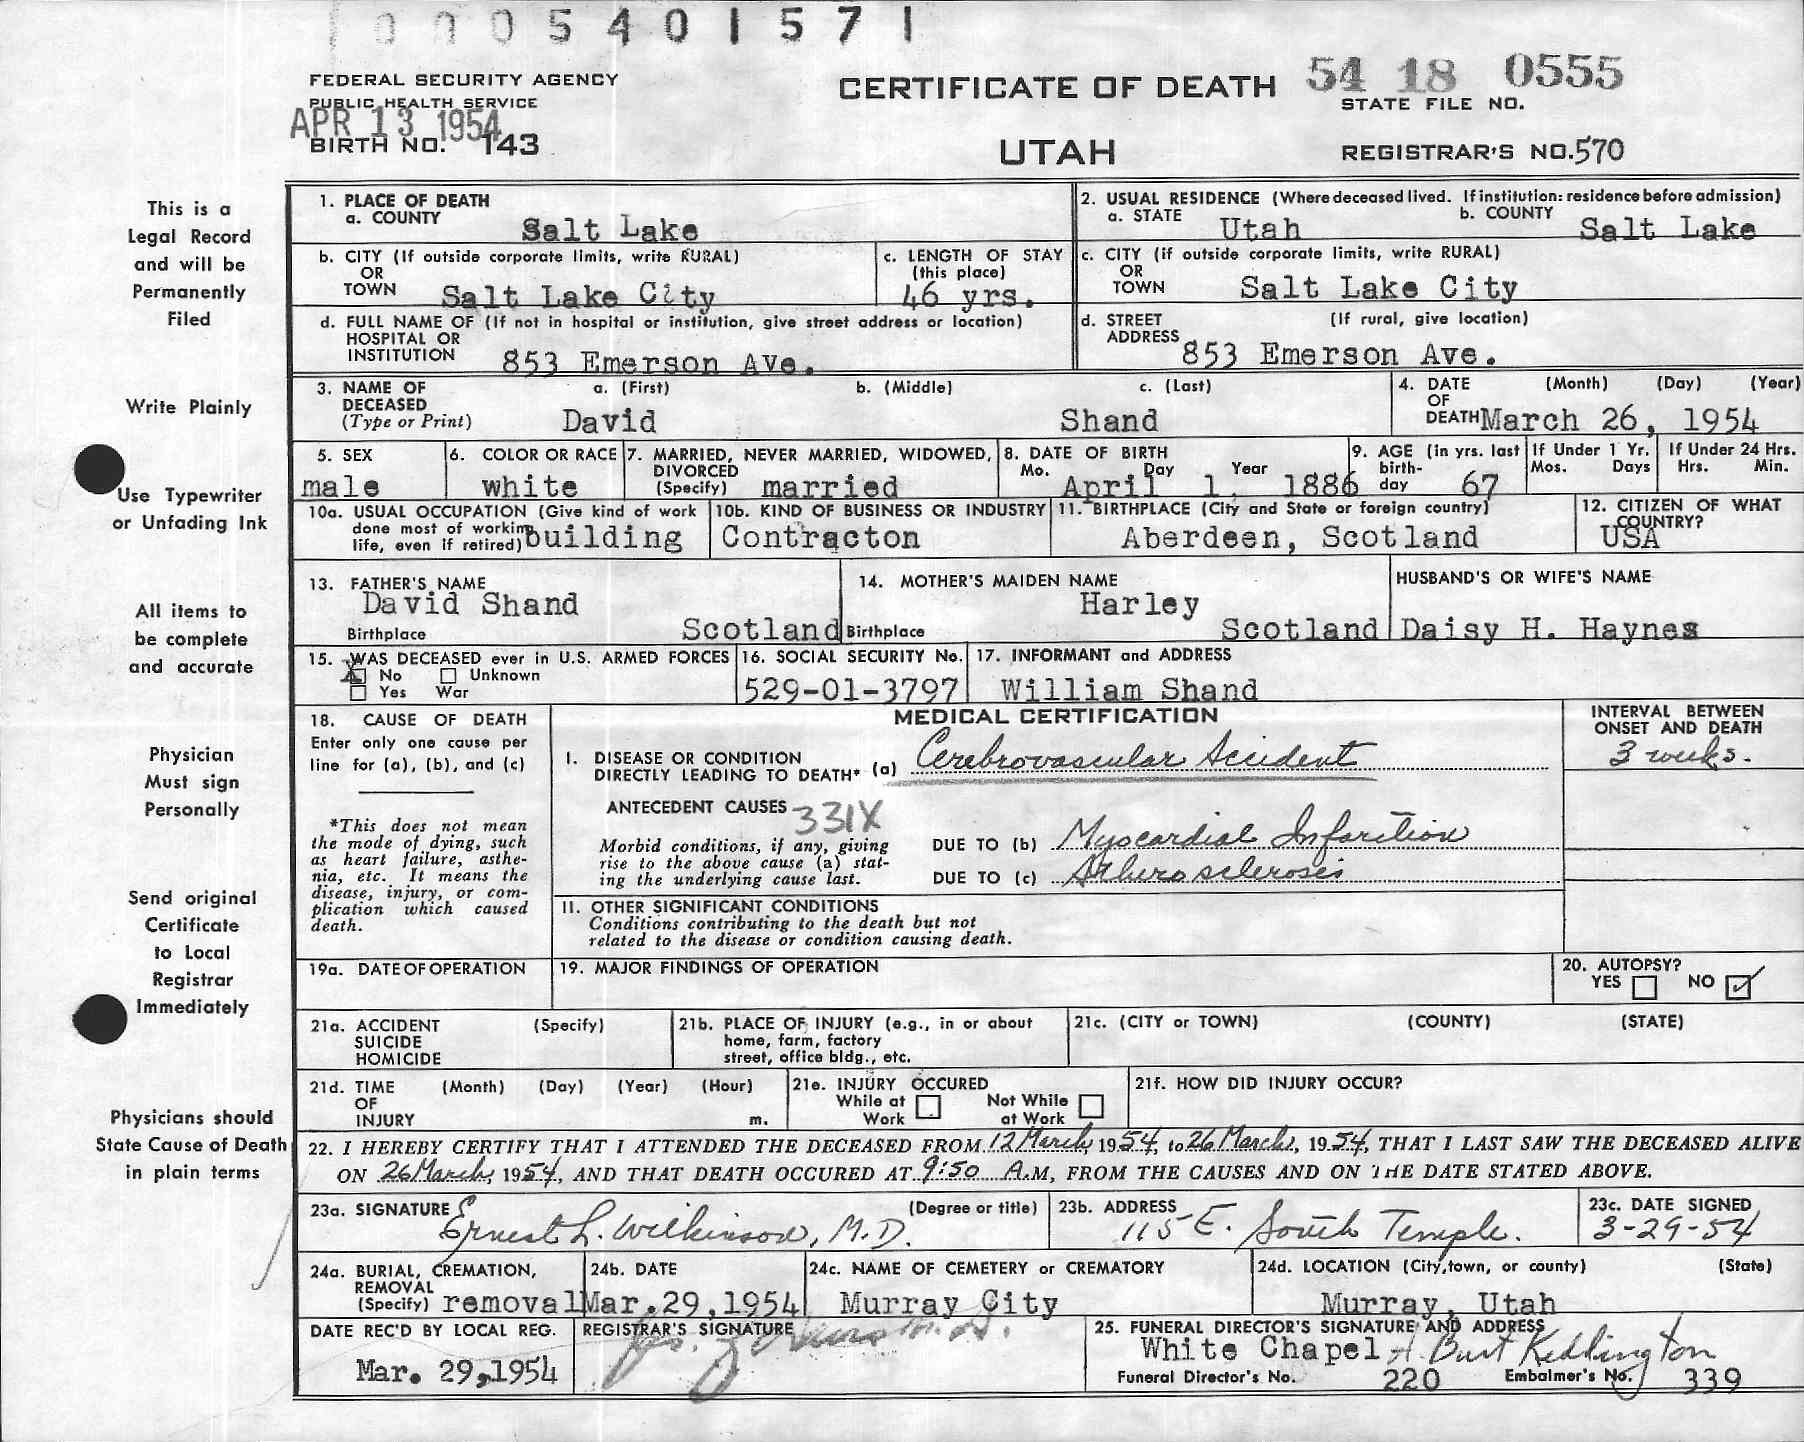 0005401571
FEDERAL SECURITY AGENCY
PUBLIC HEALTH SERVICE
APR 13 1954
BIRTH NO. 143
CERTIFICATE OF DEATH
UTAH
54 18 0555
STATE FILE NO.
REGISTRAR'S NO. 570
This is a
Legal Record
and will be
Permanently
Filed
Write Plainly
Use Typewriter
or Unfading Ink
All items to
be complete
and accurate
Physician
Must sign
Personally
Send original
Certificate
to Local
Registrar
Immediately
Physicians should
State Cause of Death
in plain terms
1. PLACE OF DEATH
a. COUNTY Salt Lake
2. USUAL RESIDENCE (Where deceased lived. If institution: residence before admission)
a. STATE Utah b. COUNTY Salt Lake
b. CITY (If outside corporate limits, write RURAL)
OR
TOWN Salt Lake City
c. LENGTH OF STAY
(this place)
46 yrs.
c. CITY (if outside corporate limits, write RURAL)
OR
TOWN Salt Lake City
d. FULL NAME OF (If not in hospital or institution, give street address or location)
HOSPITAL OR
INSTITUTION 853 Emerson AVe.
d. STREET (If rural, give location)
ADDRESS 853 Emerson Ave.
3. NAME OF a. (First) b. (Middle) c. (Last)
DECEASED
(Type or Print) David Shand
4. DATE (Month) (Day) (Year)
OF
DEATH March 26, 1954
5. SEX
male
6. COLOR OR RACE
white
7. MARRIED, NEVER MARRIED, WIDOWED,
DIVORCED
(Specify) married
8. DATE OF BIRTH
Mo. Day Year
April 1, 1886
9. AGE (in yrs. last
birth-
day 67
If Under 1 Yr.
Mos. Days
If Under 24 Hrs.
Hrs. Min.
10a. USUAL OCCUPATION (Give kind of work
done most of working
life, even if retired) building
10b. KIND OF BUSINESS OR INDUSTRY
Contracton
11. BIRTHPLACE (City and State or foreign country)
Aberdeen, Scotland
12. CITIZEN OF WHAT
COUNTRY?
USA
13. FATHER'S NAME
David Shand
Birthplace Scotland
14. MOTHER'S MAIDEN NAME
Harley
Birthplace Scotland
HUSBAND'S OR WIFE'S NAME
Daisy H. Haynes
15. WAS DECEASED ever in U.S. ARMED FORCES
X No Unknown
Yes War
16. SOCIAL SECURITY No.
529-01-3797
17. INFORMANT and ADDRESS
William Shand
18. CAUSE OF DEATH
Enter only one cause per
line for (a), (b), and (c)
*This does not mean
the mode of dying, such
as heart failure, asthe-
nia, etc. It means the
disease, injury, or com-
plication which caused
death.
MEDICAL CERTIFICATION
INTERVAL BETWEEN
ONSET AND DEATH
I. DISEASE OR CONDITION
DIRECTLY LEADING TO DEATH* (a) Cerebrovascular Accident 3 weeks.
ANTECEDENT CAUSES 331X
Morbid conditions, if any, giving
rise to the above cause (a) stat-
ing the underlying cause last.
DUE TO (b) Myocardial Infarction
DUE TO (c) Atherosclerosis
II. OTHER SIGNIFICANT CONDITIONS
Conditions contributing to the death but not
related to the disease or condition causing death.
19a. DATE OF OPERATION
19. MAJOR FINDINGS OF OPERATION
20. AUTOPSY?
YES NO ✓
21a. ACCIDENT (Specify)
SUICIDE
HOMICIDE
21b. PLACE OF INJURY (e.g., in or about
home, farm, factory
street, office bldg., etc.
21c. (CITY or TOWN) (COUNTY) (STATE)
21d. TIME (Month) (Day) (Year) (Hour)
OF
INJURY m.
21e. INJURY OCCURED
While at Not While
Work at Work
21f. HOW DID INJURY OCCUR?
22. I HEREBY CERTIFY THAT I ATTENDED THE DECEASED FROM 12 March, 1954, to 26 March, 1954, THAT I LAST SAW THE DECEASED ALIVE
ON 26 March, 1954, AND THAT DEATH OCCURED AT 9:50 A.M, FROM THE CAUSES AND ON THE DATE STATED ABOVE.
23a. SIGNATURE (Degree or title)
Ernest L. Wilkinson, M.D.
23b. ADDRESS
115 E. South Temple.
23c. DATE SIGNED
3-29-54
24a. BURIAL, CREMATION,
REMOVAL
(Specify) removal
24b. DATE
Mar. 29, 1954
24c. NAME OF CEMETERY or CREMATORY
Murray City
24d. LOCATION (City, town, or county) (State)
Murray, Utah
DATE REC'D BY LOCAL REG.
Mar. 29, 1954
REGISTRAR'S SIGNATURE
25. FUNERAL DIRECTOR'S SIGNATURE AND ADDRESS
White Chapel A. Burt Keddington
Funeral Director's No. 220 Embalmer's No. 339